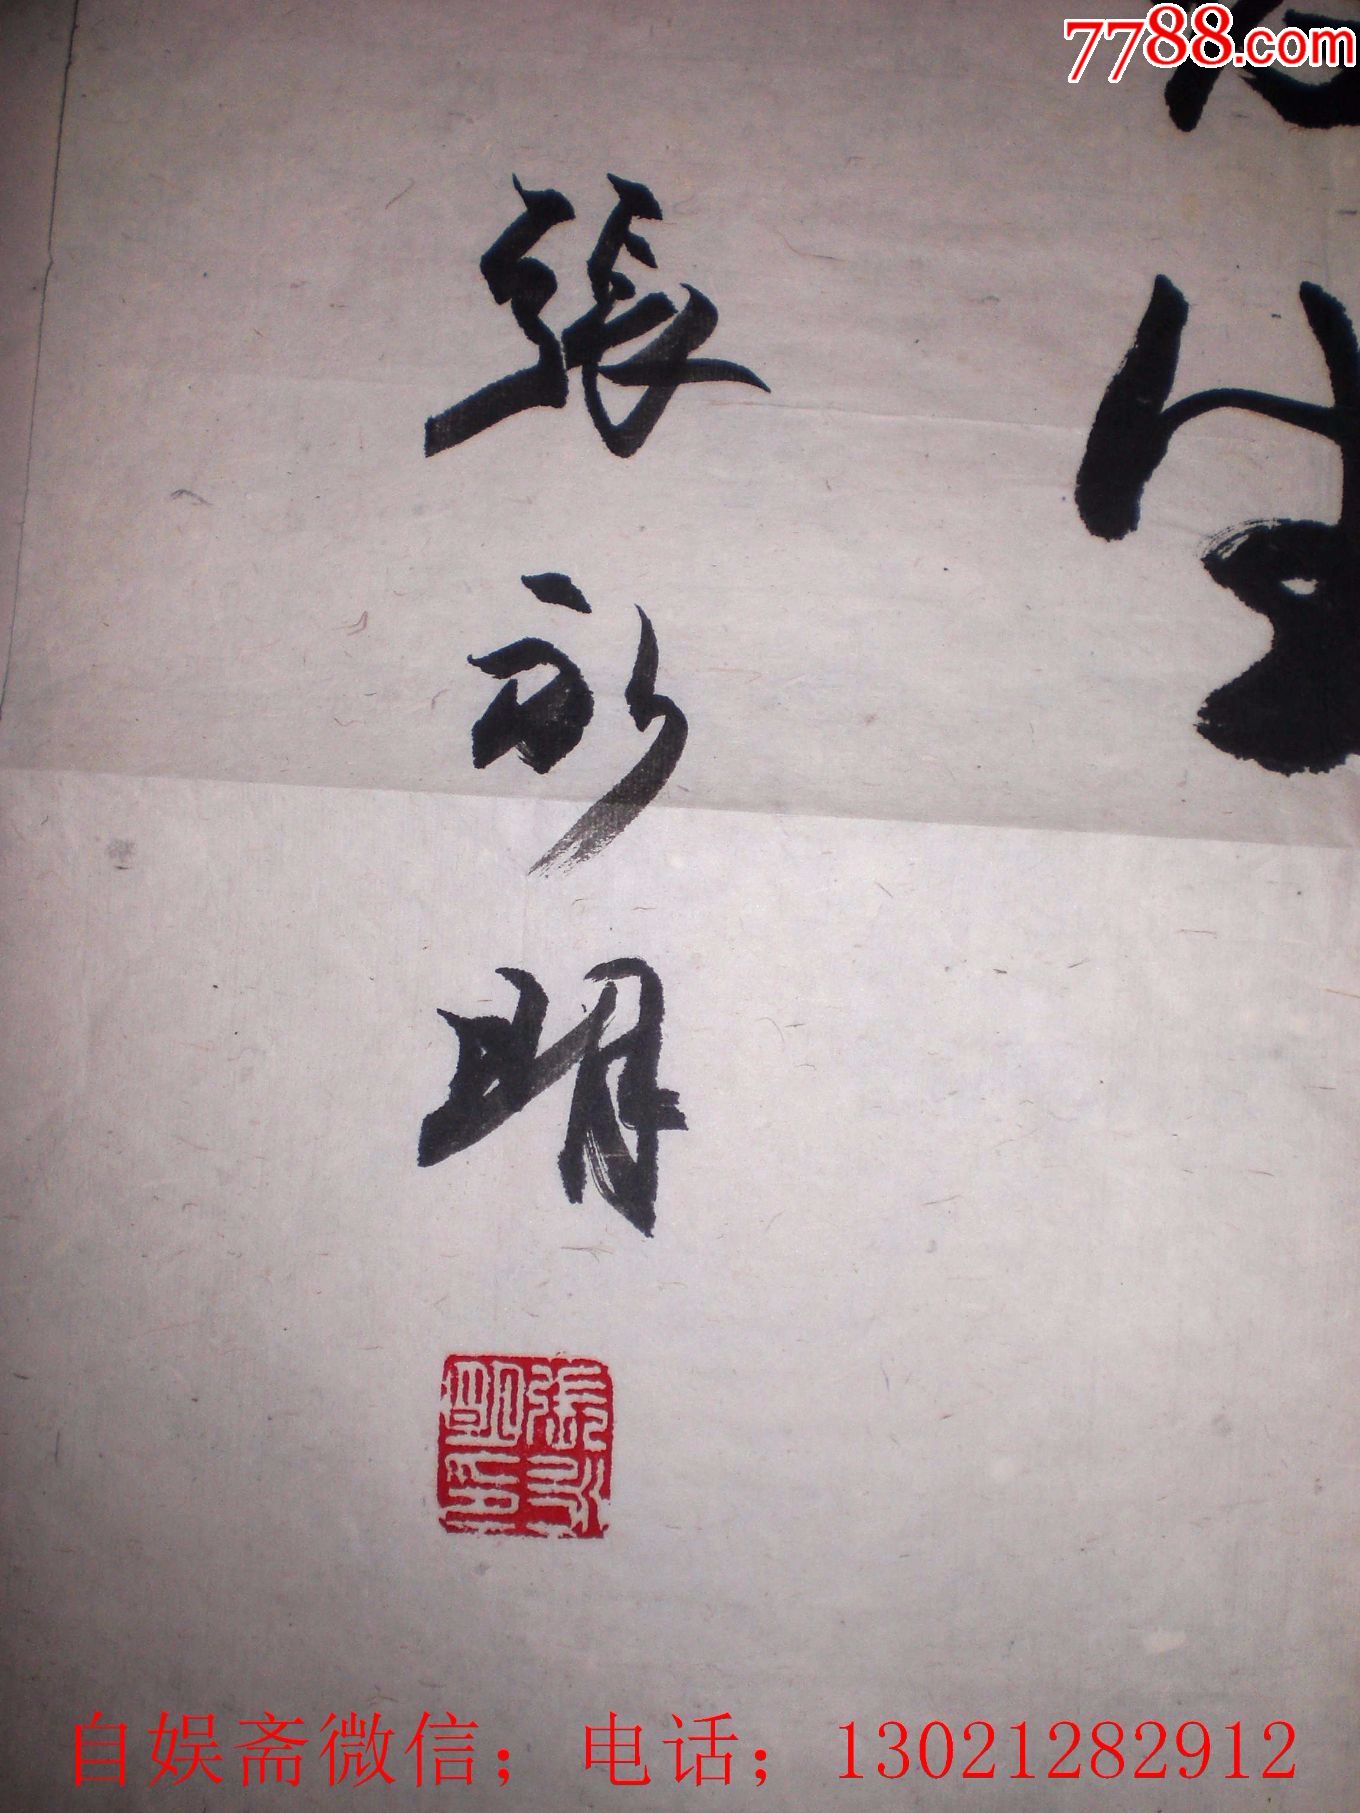 7788.com
張
永
明
張永
明印
自娱斋微信；电话；13021282912